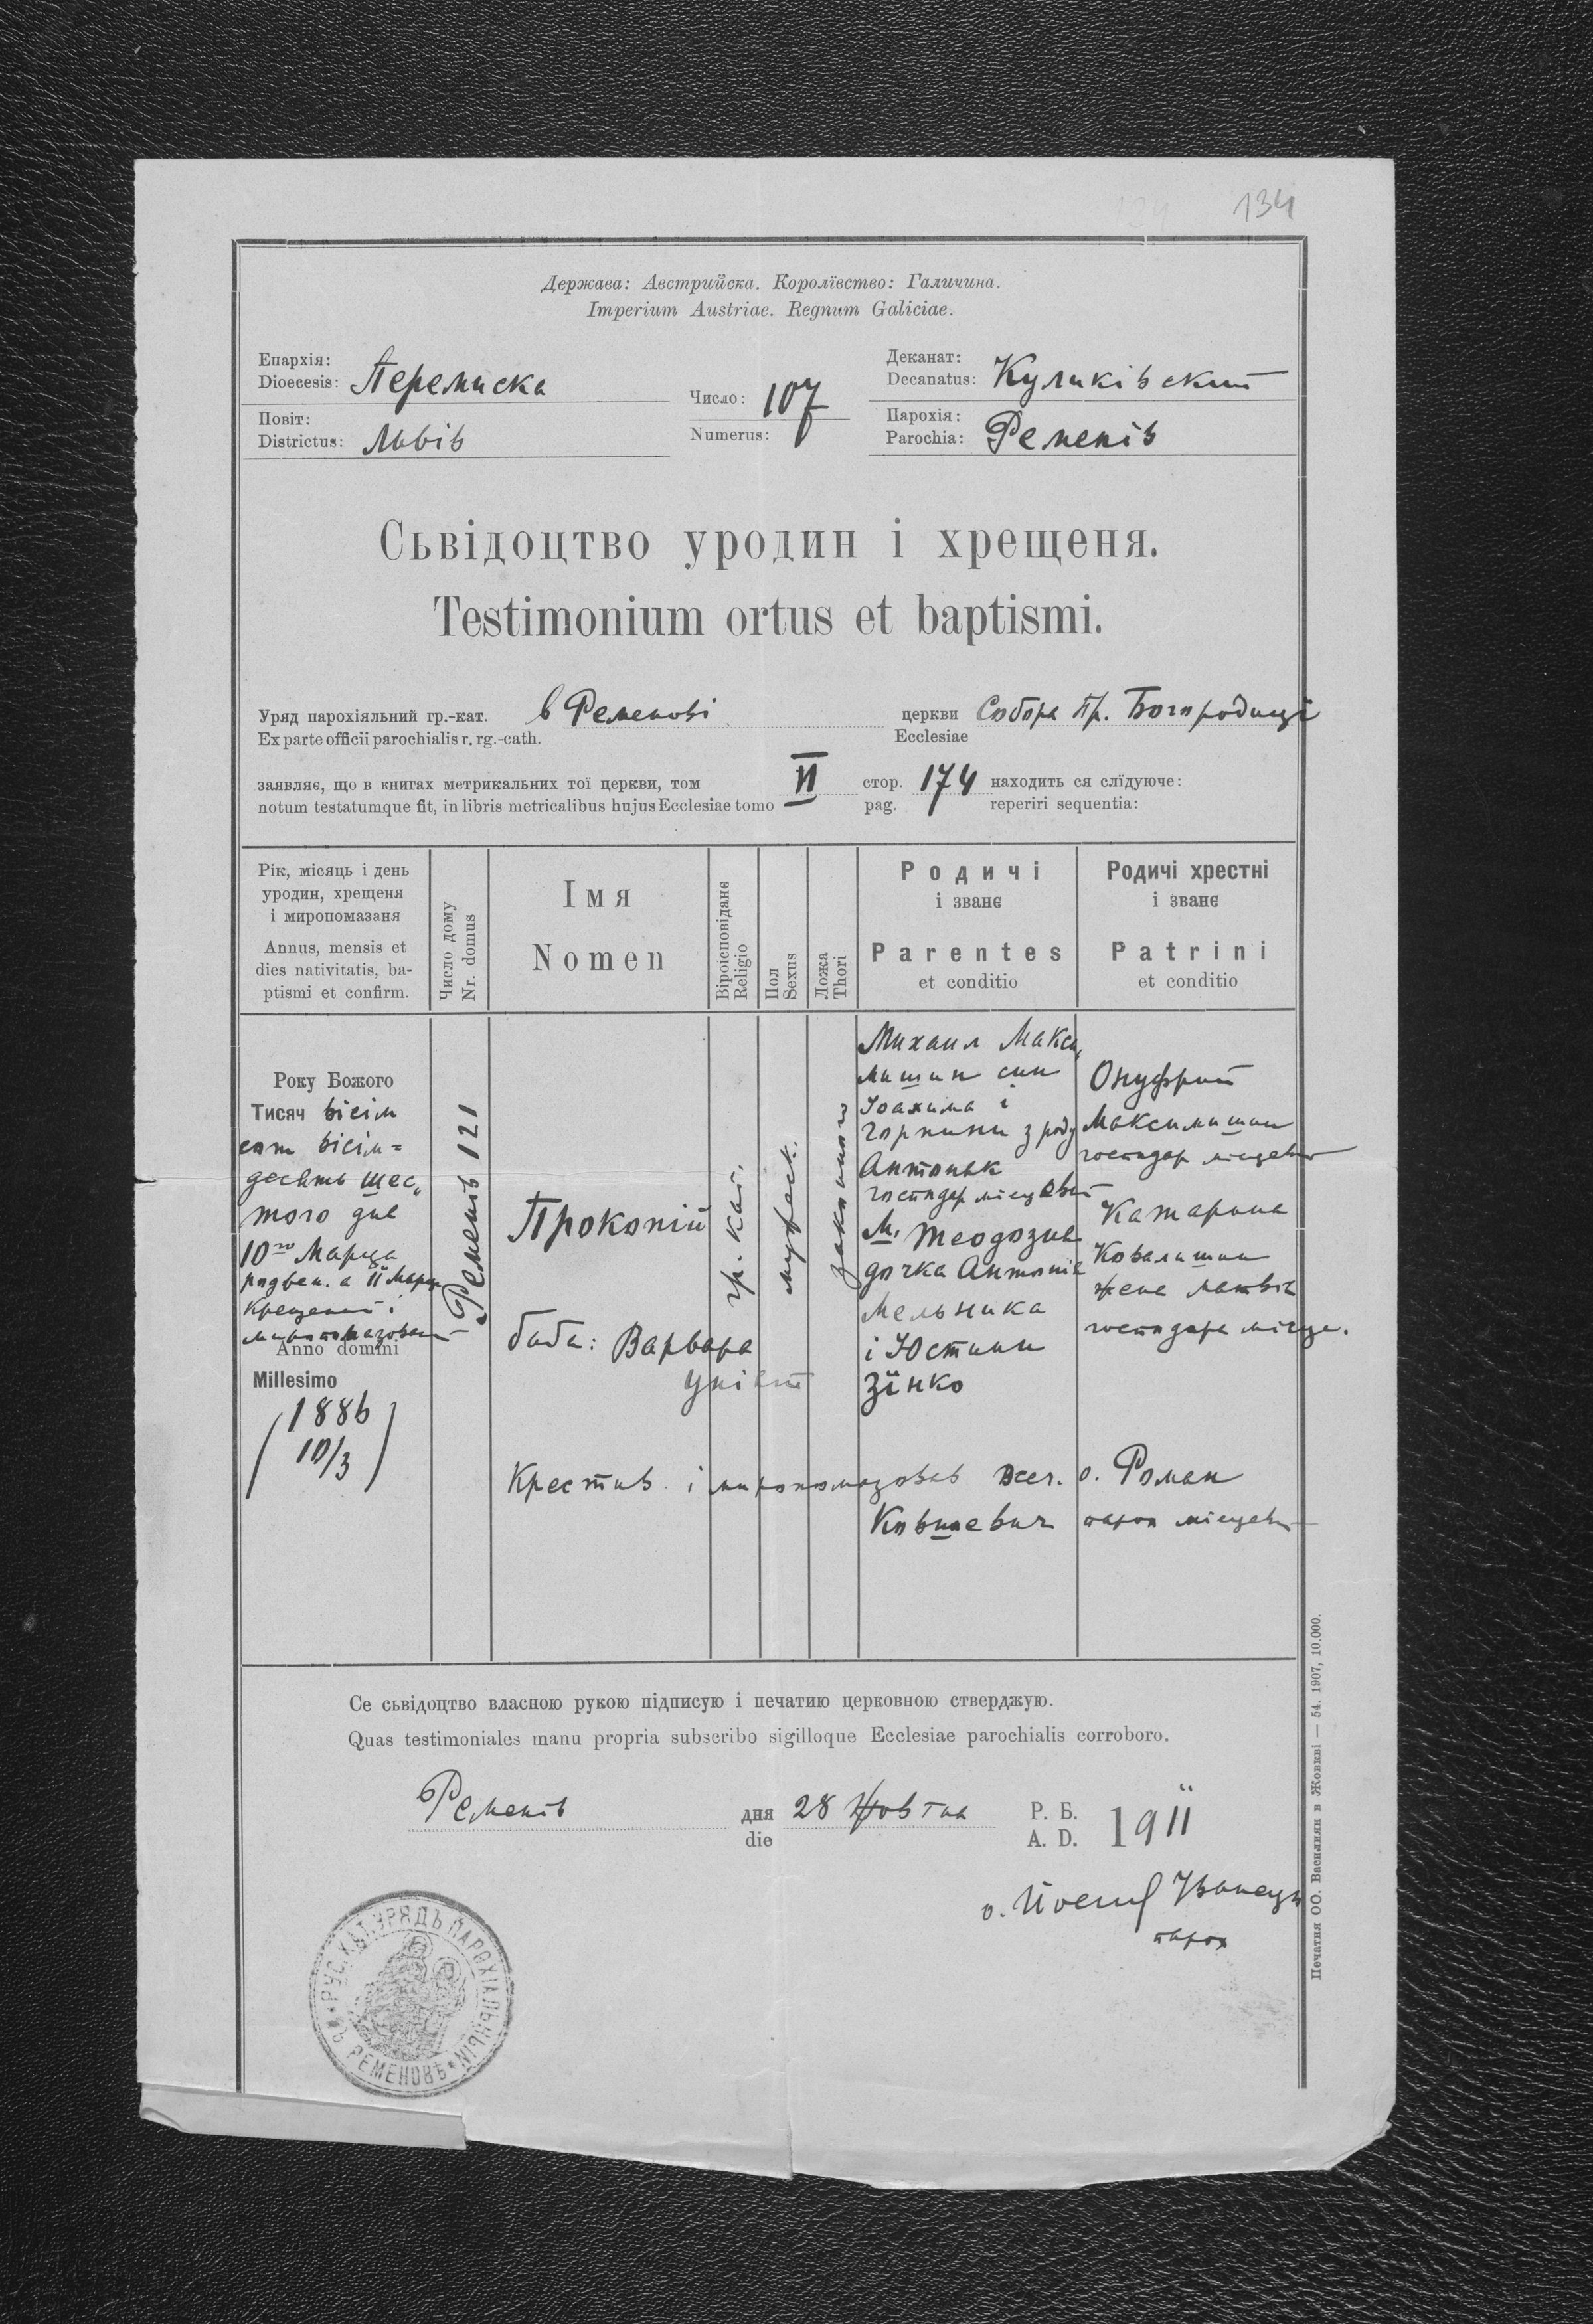 134
Держава: Австрийска. Королївство: Галичина.
Imperium Austriae. Regnum Galiciae.
Епархія:
Dioecesis: Перемиска
Число: 107
Numerus:
Деканат:
Decanatus: Куликівский
Повіт:
Districtus: Львів
Парохія:
Parochia: Ременів
Сьвідоцтво уродин і хрещеня.
Testimonium ortus et baptismi.
Уряд парохіяльний гр.-кат. в Ременові церкви Собора Пр. Богородиці
Ex parte officii parochialis r. rg.-cath. Ecclesiae
заявляє, що в книгах метрикальних тої церкви, том II стор. 174 находить ся слїдуюче:
notum testatumque fit, in libris metricalibus hujus Ecclesiae tomo pag. reperiri sequentia:
Рік, місяць і день
уродин, хрещеня
і миропомазаня
Annus, mensis et
dies nativitatis, ba-
ptismi et confirm.
Число дому
Nr. domus
Імя
Nomen
Віроісповіданє
Religio
Пол
Sexus
Ложа
Thori
Родичі
і званє
Parentes
et conditio
Родичі хрестні
і званє
Patrini
et conditio
Року Божого
Тисяч вісім
сот вісім=
десять шес„
того дня
10го Марця
родвен. а 11 Марця
Крещений і
миропомазований
Anno domini
Millesimo
(1886
10/3)
Ременів 121
Прокопій
баба: Варвара
гр. кат.
мужеск.
законного
Михаил Макси„
мишин син
Іоахима і
Горпини з роду
Антоняк
господар місцевий
М. Теодозия
дочка Антонія
Мельника
і Юстини
Зїнко
Онуфрий
Максимишин
господар місцевий
Катарина
Ковалишин
жена Матвія
господаря місце.
Крестив і миропомазовав всеч. о. Роман
Ковшевич парох місцевий
Се сьвідоцтво власною рукою підписую і печатию церковною стверджую.
Quas testimoniales manu propria subscribo sigilloque Ecclesiae parochialis corroboro.
Ременів дня 28 Жовтня Р. Б. 1911
die A. D.
о. Йосиф Іванець
парох
РУС. КАТ. УРЯДЪ ПАРОХІАЛЬНЫЙ ВЪ РЕМЕНОВѢ
Печатня ОО. Василиян в Жовкві — 54. 1907, 10.000.